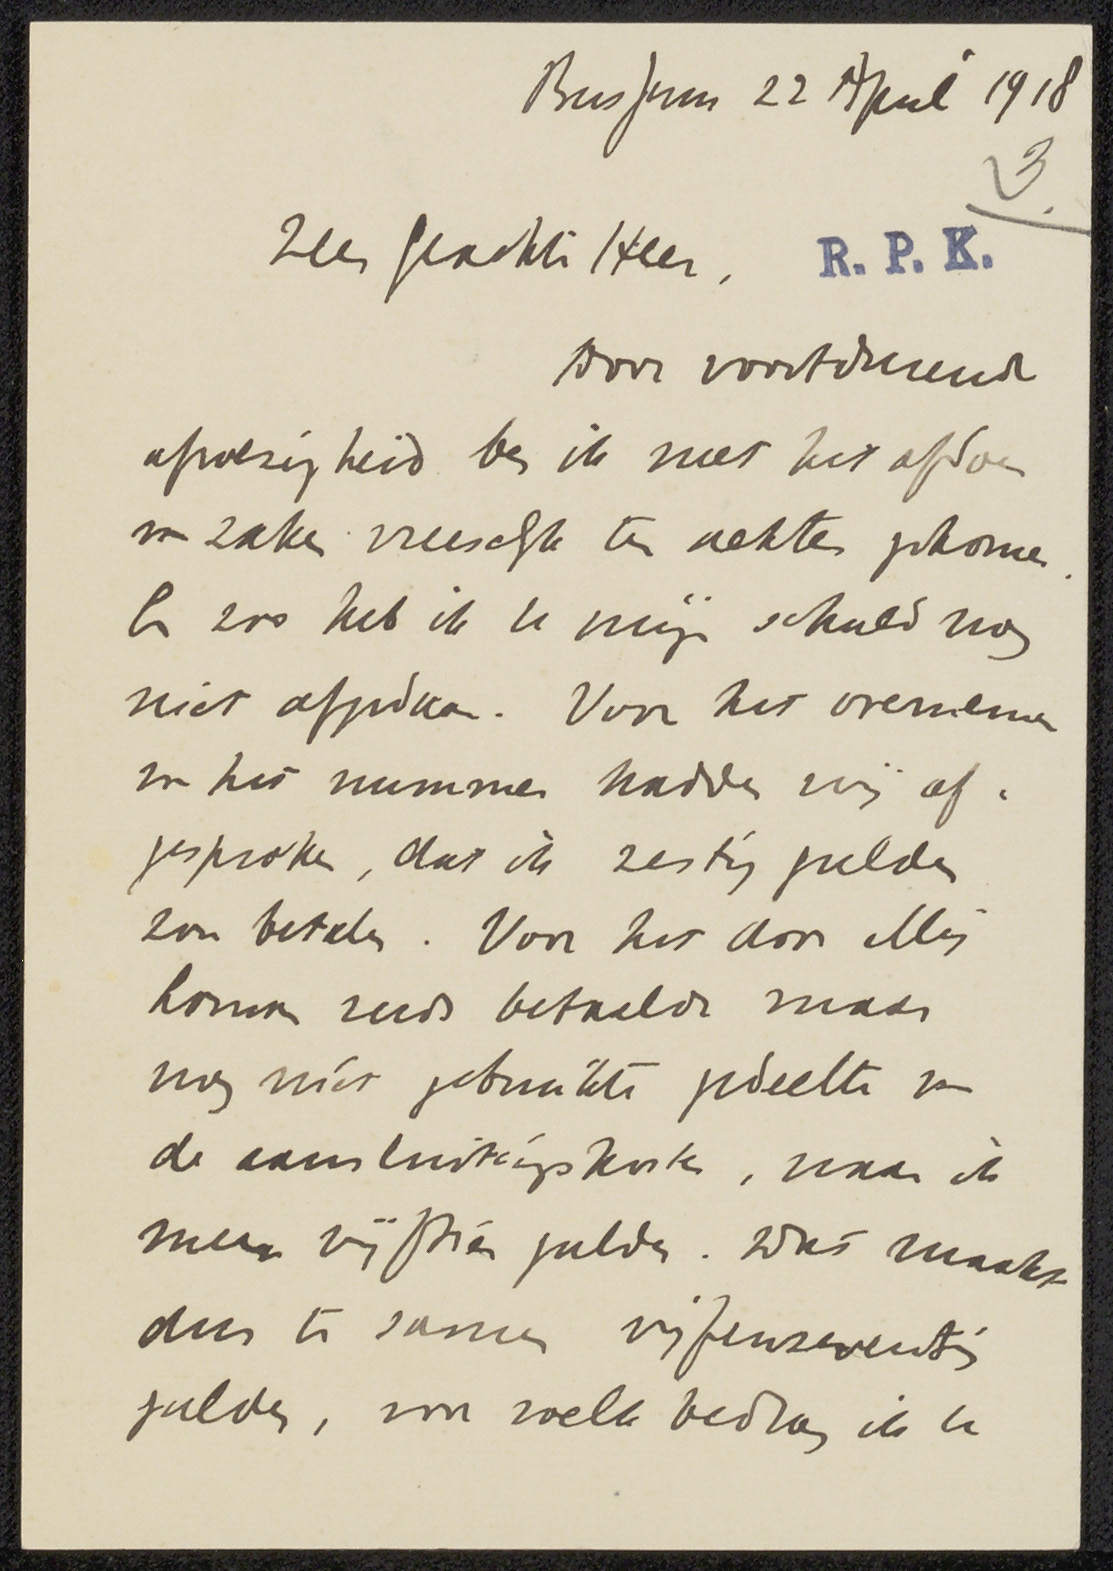 Bussum 22 April 1918
3.
Zeer geachte Heer,
R. P. K.
Door voortdurende
afwezigheid ben ik met het afdoen
van zaken vreeselijk ten achter gekomen.
En zoo heb ik U mijn schuld nog
niet afgedaan. Voor het overnemen
van het nummer hadden wij af-
gesproken, dat ik zestig gulden
zou betalen. Voor het door
reeds betaalde maar
nog niet gebruikte gedeelte van
de aansluitingskosten, naar ik
meen vijftien gulden. Dat maakt
dus te samen vijfenzeventig
gulden, voor welk bedrag ik U